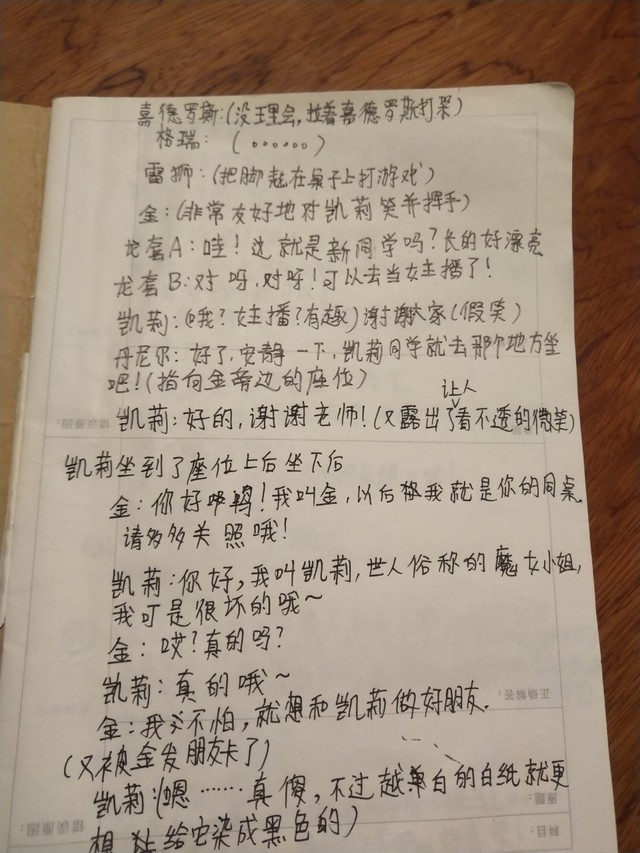 嘉德罗斯:(没理会,拉着嘉德罗斯打架)
格瑞: (……)
雷狮:(把脚翘在桌子上打游戏)
金:(非常友好地对凯莉笑并挥手)
龙套A:哇!这就是新同学吗?长的好漂亮
龙套B:对呀,对呀!可以去当女主播了!
凯莉:(我?女主播?有趣)谢谢大家(假笑)
丹尼尔:好了,安静一下,凯莉同学就去那个地方坐
吧!(指向金旁边的座位)
让人
凯莉:好的,谢谢老师!(又露出了看不透的微笑)
凯莉坐到了座位上后坐下后
金:你好呀!我叫金,以后我就是你的同桌
请多多关照哦!
凯莉:你好,我叫凯莉,世人俗称的魔女小姐,
我可是很坏的哦~
金:哎?真的吗?
凯莉:真的哦~
金:我不怕,就想和凯莉做好朋友.
(又被金发朋友卡了)
凯莉:(嗯……真傻,不过越单白的白纸就更
想 给它染成黑色的)
错误原因:
正确解答:
原题:
错误原因:
科目: